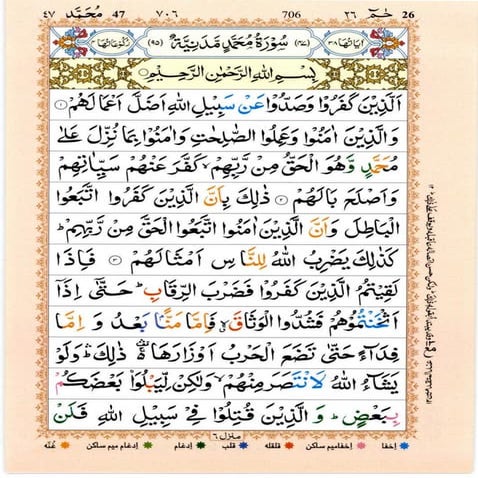 ٤٧ محمد 47 ٧٠٦ 706 حٰمٓ ٢٦ 26
اٰیاتہا ٣٨ (٤٧) سُوۡرَۃُ مُحَمَّدٍ مَدَنِیَّۃٌ (٩٥) رکوعاتہا ٤
بِسۡمِ اللّٰہِ الرَّحۡمٰنِ الرَّحِیۡمِ
اَلَّذِیۡنَ کَفَرُوۡا وَصَدُّوۡا عَنۡ سَبِیۡلِ اللّٰہِ اَضَلَّ اَعۡمَالَہُمۡ ﴿١﴾
وَالَّذِیۡنَ اٰمَنُوۡا وَعَمِلُوا الصّٰلِحٰتِ وَاٰمَنُوۡا بِمَا نُزِّلَ عَلٰی
مُحَمَّدٍ وَّہُوَ الۡحَقُّ مِنۡ رَّبِّہِمۡ ۙ کَفَّرَ عَنۡہُمۡ سَیِّاٰتِہِمۡ
وَاَصۡلَحَ بَالَہُمۡ ﴿٢﴾ ذٰلِکَ بِاَنَّ الَّذِیۡنَ کَفَرُوا اتَّبَعُوا
الۡبَاطِلَ وَاَنَّ الَّذِیۡنَ اٰمَنُوا اتَّبَعُوا الۡحَقَّ مِنۡ رَّبِّہِمۡ ؕ
کَذٰلِکَ یَضۡرِبُ اللّٰہُ لِلنَّاسِ اَمۡثَالَہُمۡ ﴿٣﴾ فَاِذَا
لَقِیۡتُمُ الَّذِیۡنَ کَفَرُوۡا فَضَرۡبَ الرِّقَابِ ؕ حَتّٰۤی اِذَاۤ
اَثۡخَنۡتُمُوۡہُمۡ فَشُدُّوا الۡوَثَاقَ ۙ فَاِمَّا مَنًّۢا بَعۡدُ وَاِمَّا
فِدَآءً حَتّٰی تَضَعَ الۡحَرۡبُ اَوۡزَارَہَا ۟ ذٰلِکَ ؕ وَلَوۡ
یَشَآءُ اللّٰہُ لَانۡتَصَرَ مِنۡہُمۡ وَلٰکِنۡ لِّیَبۡلُوَا۠ بَعۡضَکُمۡ
بِبَعۡضٍ ؕ وَالَّذِیۡنَ قُتِلُوۡا فِیۡ سَبِیۡلِ اللّٰہِ فَلَنۡ
منزل ٦
اخفا اخفامیم ساکن قلقلہ قلب ادغام ادغام میم ساکن غُنّہ